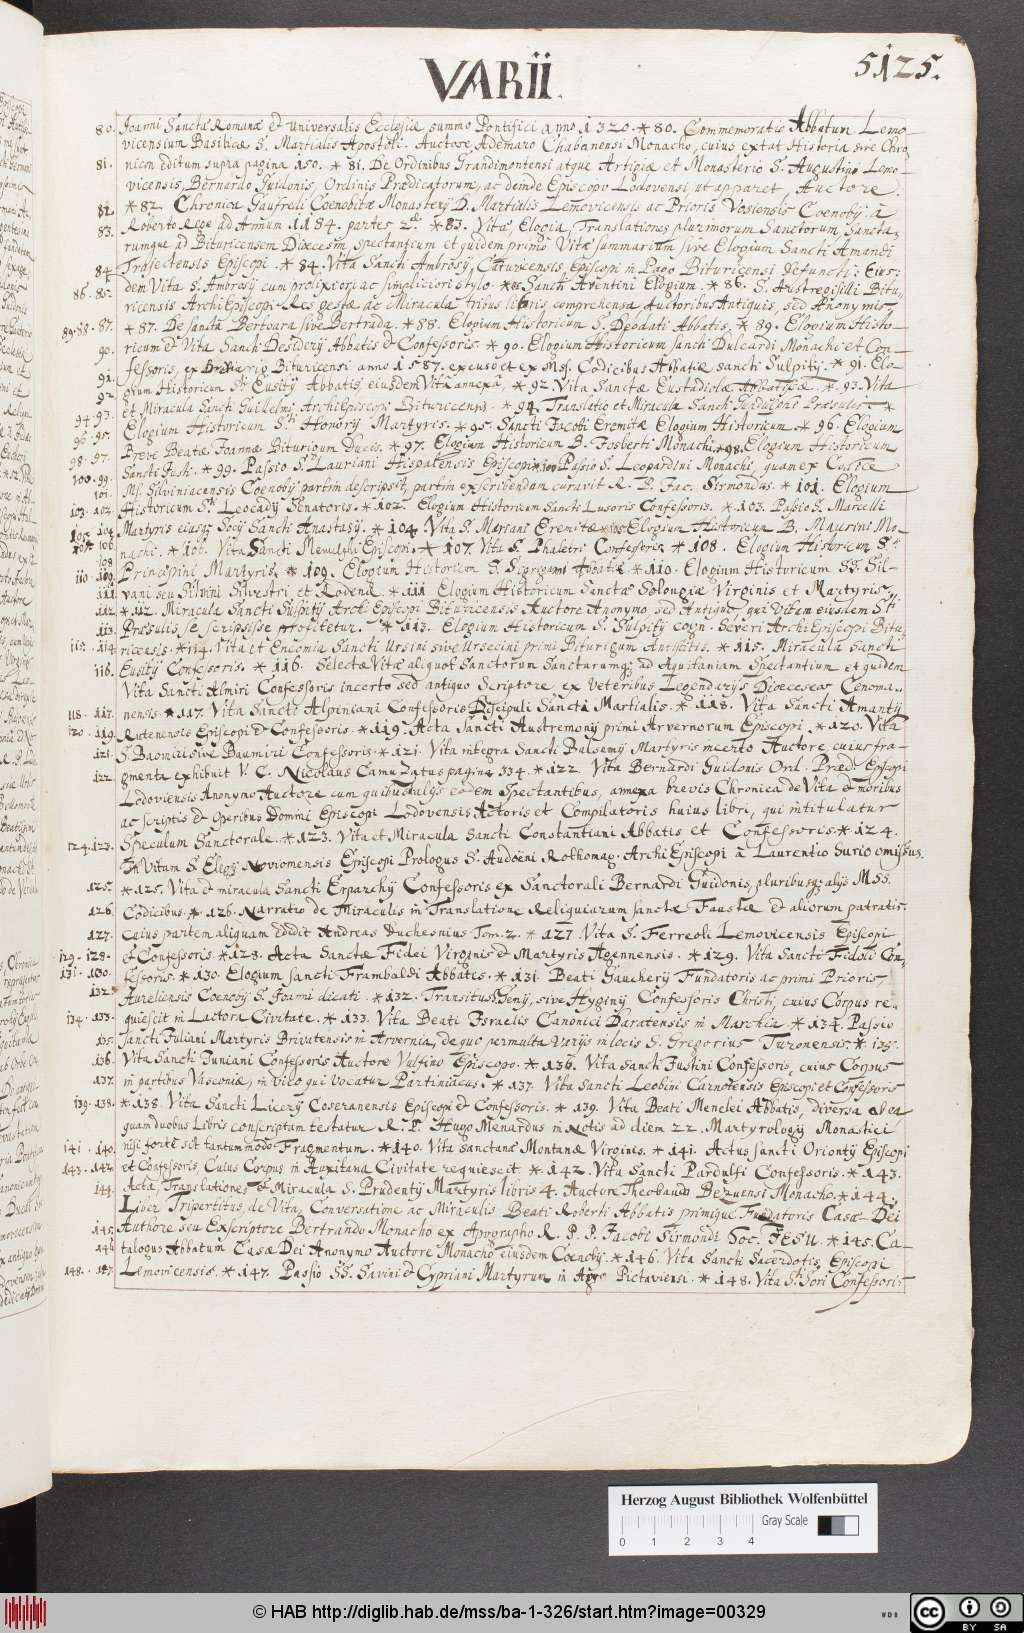 VARII.
5125.
80. Joanni Sanctæ Romanæ et Universalis Ecclesiæ summo Pontifici anno 1320. * 80. Commemoratio Abbatum Lemo-
vicensium Basilicæ S. Martialis Apostoli. Auctore Ademaro Chabanensi Monacho, cuius extat Historia sive Chro-
81. nicon editum supra pagina 150. * 81. De Ordinibus Grandimontensi atque Artigiæ et Monasterio S. Augustini Lemo-
vicensis, Bernardo Guidonis, Ordinis Prædicatorum, ac deinde Episcopo Lodovensi ut apparet, Auctore.
82. * 82. Chronica Gaufredi Coenobitæ Monasterij D. Martialis Lemovicensis ac Prioris Vosiensis Coenobij à
83. Roberto Rege ad Annum 1184. partes 2. * 83. Vitæ, Elogia, Translationes plurimorum Sanctorum Sancta-
rumque ad Bituricensem Diœcesim spectantium et quidem primo Vitæ summarium sive Elogium Sancti Amandi
84. Trajectensis Episcopi. * 84. Vita Sancti Ambrosij, Caturcensis Episcopi in Pago Bituricensi defuncti: Eius-
86. 85. dem Vita S. Ambrosij cum prolixiori ac simpliciori stylo * 85 Sancti Aventini Elogium. * 86. S. Austregisilli Bitu-
ricensis ArchiEpiscopi Res gestæ ac Miracula tribus libris comprehensa, Auctoribus Antiquis, sed Anonymis
89. 88. 87. * 87. De sancta Bertoara sive Bertrada. * 88. Elogium Historicum S. Deodati Abbatis. * 89. Elogium Histo-
90. ricum et Vita Sancti Desiderij Abbatis et Confessoris. * 90. Elogium Historicum sancti Dulcardi Monachi et Con-
91. fessoris, ex Breviario Bituricensi anno 1587. excuso et ex Mss. Codicibus Abbatiæ sancti Sulpitij. * 91. Elo-
92. gium Historicum Sti Eusitij Abbatis eiusdem Vitæ annexa. * 92. Vita Sanctæ Eustadiolæ Abbatissæ. * 93. Vita
94. 93. et Miracula Sancti Guillelmi, ArchiEpiscopi Bituricensis. * 94. Translatio et Miracula Sancti Gundulphi Præsulis *
96. 95. Elogium Historicum Sti Honorij Martyris. * 95. Sancti Jacobi Eremitæ Elogium Historicum. * 96. Elogium
98. 97. Breve Beatæ Joannæ Biturigum Ducis. * 97. Elogium Historicum B. Josberti Monachi. * 98. Elogium Historicum
100. 99. Sancti Justi. * 99. Passio Sti Lauriani Hispalensis Episcopi * 100 Passio S. Leopardini Monachi, quam ex Codice
101. Ms. Silviniacensis Coenobij partim descripsit, partim exscribendam curavit R. P. Jac. Sirmondus. * 101. Elogium
103. 102. Historicum Sti Leocadij Senatoris. * 102. Elogium Historicum Sancti Lusoris Confessoris. * 103. Passio S. Marcelli
105. 104. Martyris eiusq; Socij Sancti Anastasij. * 104. Vita S. Mariani Eremitæ * 105 Elogium Historicum B. Maurini Mo-
107. 106. nachi. * 106. Vita Sancti Menulphi Episcopi * 107. Vita S. Phaletri Confessoris * 108. Elogium Historicum Sti
108
110. 109. Principini Martyris * 109. Elogium Historicum S. Sigeranni Abbatis * 110. Elogium Historicum SS. Sil-
111. vani seu Silvini Silvestri et Rodenæ * 111 Elogium Historicum Sanctæ Solongiæ Virginis et Martyris.
112. * 112. Miracula Sancti Sulpitij Archi Episcopi Bituricensis Auctore Anonymo sed Antiquo, qui Vitam eiusdem Sti
113. Præsulis se scripsisse profitetur. * 113. Elogium Historicum S. Sulpitij cogn. Severi ArchiEpiscopi Bitu-
115. 114. ricensis. * 114. Vita et Encomia Sancti Ursini sive Ursecini primi Biturigum Antistitis. * 115. Miracula Sancti
116. Eusitij Confessoris. * 116. Selectæ Vitæ aliquot Sanctorum Sanctarumq; ad Aquitaniam Spectantium et quidem
Vita Sancti Almiri Confessoris incerto sed antiquo Scriptore ex Veteribus Legendarijs Dioeceseos Cenoma-
118. 117. nensis. * 117. Vita Sancti Alpiniani Confessoris Discipuli Sancti Martialis. * 118. Vita Sancti Amantij
120. 119. Rutenensis Episcopi et Confessoris. * 119. Acta Sancti Austremonij primi Arvernorum Episcopi. * 120. Vita
121. S. Baomiri sive Baumiri Confessoris. * 121. Vita integra Sancti Balsemij Martyris incerto Auctore, cuius fra-
122. gmenta exhibuit V. C. Nicolaus Camuzatus pagina 334. * 122. Vita Bernardi Guidonis Ord. Præd. Episcopi
Lodoviensis Anonymo Auctore cum quibusd. alijs eodem spectantibus, annexa brevis Chronica de Vita et moribus
ac scriptis et operibus Domini Episcopi Lodovensis Actoris et Compilatoris huius libri, qui intitulatur
124. 123. Speculum Sanctorale. * 123. Vita et Miracula Sancti Constantiani Abbatis et Confessoris. * 124.
In Vitam S. Eligij Noviomensis Episcopi Prologus S. Audoëni Rothomag. ArchiEpiscopi à Laurentio Surio omissus.
125. * 125. Vita et miracula Sancti Eparchij Confessoris ex Sanctorali Bernardi Guidonis, pluribusq; alijs MSS.
126. Codicibus. * 126. Narratio de Miraculis in Translatione Reliquiarum sanctæ Faustæ et aliorum patratis.
127. Cuius partem aliquam edidit Andreas Duchesnius Tom. 2. * 127. Vita S. Ferreoli Lemovicensis Episcopi
129. 128. et Confessoris. * 128. Acta Sanctæ Fidei Virginis et Martyris Agennensis. * 129. Vita Sancti Fidoli Con-
131. 130. fessoris. * 130. Elogium sancti Frambaldi Abbatis. * 131. Beati Gaucherij Fundatoris ac primi Prioris
132. Aureliensis Coenobij S. Joanni dicati. * 132. Transitus S. Genij, sive Hyginij Confessoris Christi, cuius Corpus re-
134. 133. quiescit in Lactora Civitate. * 133. Vita Beati Israelis Canonici Daratensis in Marchia * 134. Passio
135. Sancti Juliani Martyris Brivatensis in Arvernia, de quo permulta varijs in locis S. Gregorius Turonensis. * 135.
136. Vita Sancti Juniani Confessoris Auctore Vulfino Episcopo. * 136. Vita Sancti Justini Confessoris, cuius Corpus
137. in partibus Vasconiæ, in vico qui vocatur Partiniacus. * 137. Vita Sancti Leobini Carnotensis Episcopi et Confessoris
139. 138. * 138. Vita Sancti Licerij Coseranensis Episcopi et Confessoris. * 139. Vita Beati Menelei Abbatis, diversa ab ea
quam duobus Libris conscriptam testatur R. P. Hugo Menardus in Notis ad diem 22. Martyrologij Monastici
141. 140. nisi fortè sit tantummodo Fragmentum. * 140. Vita Sanctanæ Montanæ Virginis. * 141. Actus Sancti Orientij Episcopi
143. 142. et Confessoris, Cuius Corpus in Auxitana Civitate requiescit. * 142. Vita Sancti Pardulfi Confessoris. * 143.
144. Acta, Translationes et Miracula S. Prudentij Martyris libris 4. Auctore Theobaudo Bezuensi Monacho. * 144.
Liber Tripertitus, de Vita, Conversatione ac Miraculis Beati Roberti Abbatis primique Fundatoris Casæ Dei
145. Authore seu Exscriptore Bertrando Monacho ex Apographo R. P. P. Jacobi Sirmondi Soc. JESU. * 145. Ca-
146 talogus Abbatum Casæ Dei Anonymo Auctore Monacho eiusdem Coenobij. * 146. Vita Sancti Sacerdotis Episcopi
148. 147. Lemovicensis. * 147. Passio SS. Savini et Cypriani Martyrum in Agro Pictaviensi. * 148. Vita Sti Sori Confessoris
Herzog August Bibliothek Wolfenbüttel
0 1 2 3 4
Gray Scale
© HAB http://diglib.hab.de/mss/ba-1-326/start.htm?image=00329
WDB
cc BY SA